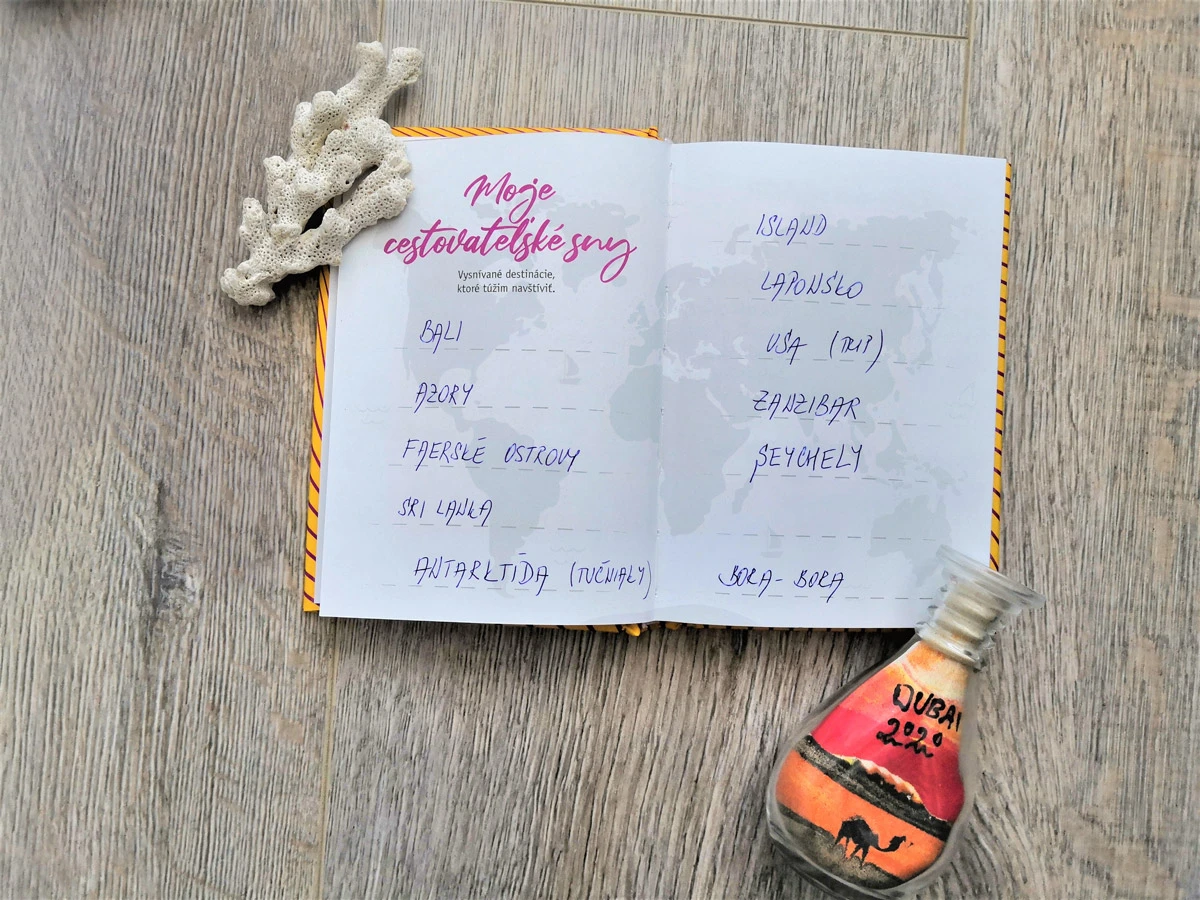 Moje
cestovateľské sny
Vysnívané destinácie,
ktoré túžim navštíviť.
BALI
AZORY
FAERSKÉ OSTROVY
SRI LANKA
ANTARKTÍDA (TUČNIAKY)
ISLAND
LAPONSKO
USA (TRIP)
ZANZIBAR
SEYCHELY
BORA-BORA
DUBAI
2020